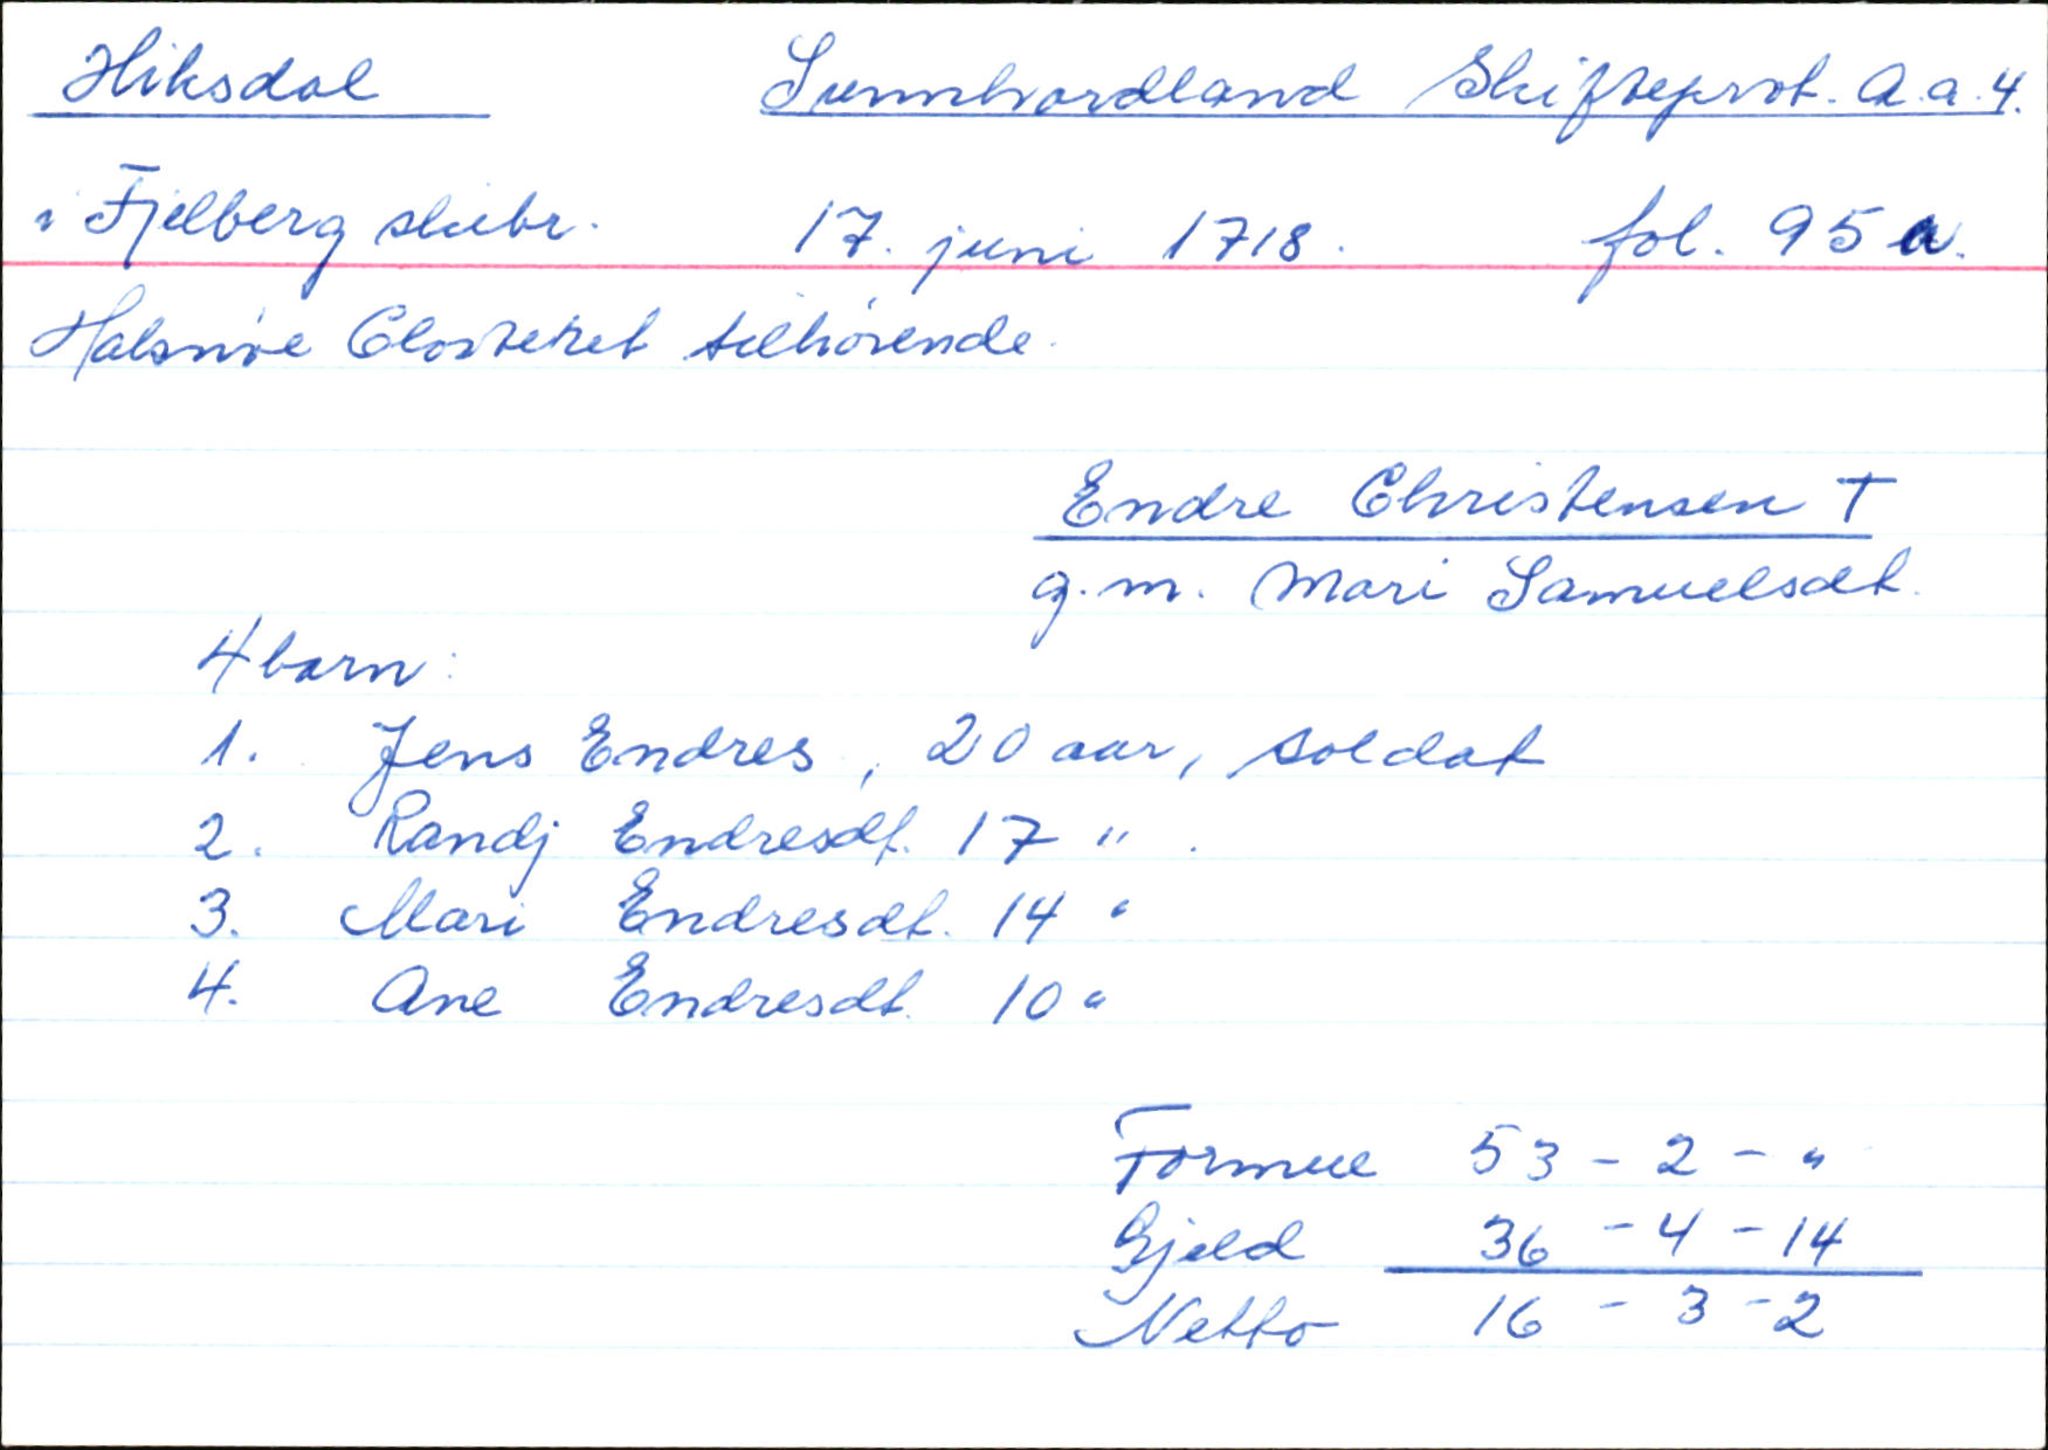 Hiksdal Sunnhordland Skifteprot. A.a.4.
i Fjelberg skibr. 17. juni 1718. fol. 95a.
Halsnöe Closteret tilhörende.
Endre Christensen †
g.m. Mari Samuelsdt.
4 barn:
1. Jens Endres, 20 aar, soldat
2. Randj Endresdt. 17 " .
3. Mari Endresdt. 14 "
4. Ane Endresdt. 10 "
Formue 53 - 2 - "
Gjeld 36 - 4 - 14
Netto 16 - 3 - 2